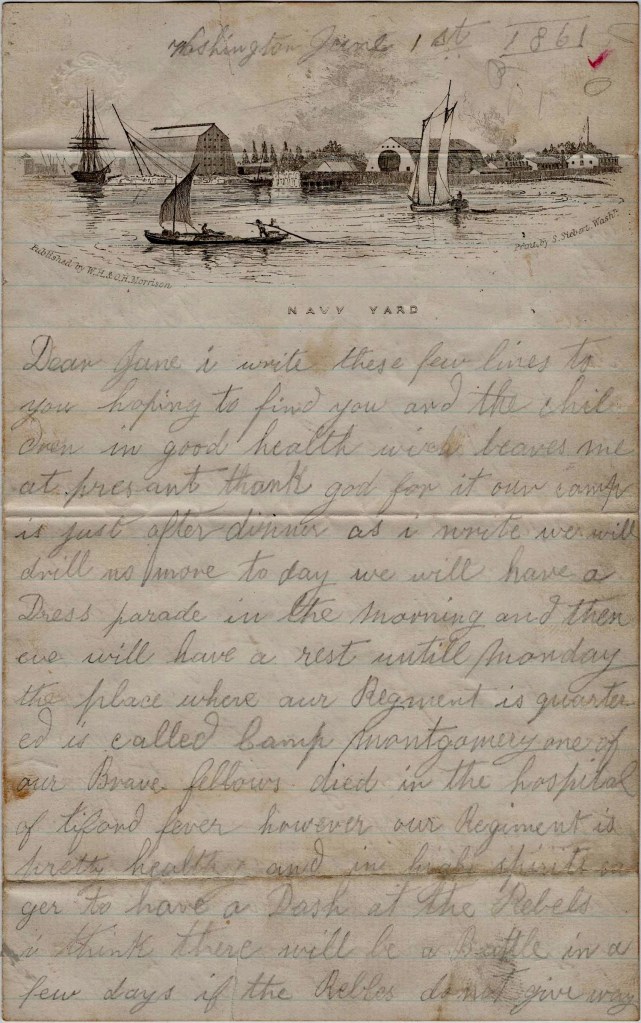 Washington June 1st 1861
Published by W.H. & O.H. Morrison
Print. by S. Siebert. Washn.
NAVY YARD
Dear Jane i write these few lines to
you hoping to find you and the chil
dren in good health wich leaves me
at presant thank god for it our camp
is just after dinner as i write we will
drill no more to day we will have a
Dress parade in the morning and then
we will have a rest untill Monday
the place where our Regment is quarter
ed is called Camp Montgomery one of
our Brave fellows died in the hospital
of tiford fever however our Regiment is
pretty healthy and in high spirits ea
ger to have a Dash at the Rebels
i think there will be a Battle in a
few days if the Rebles do not give way